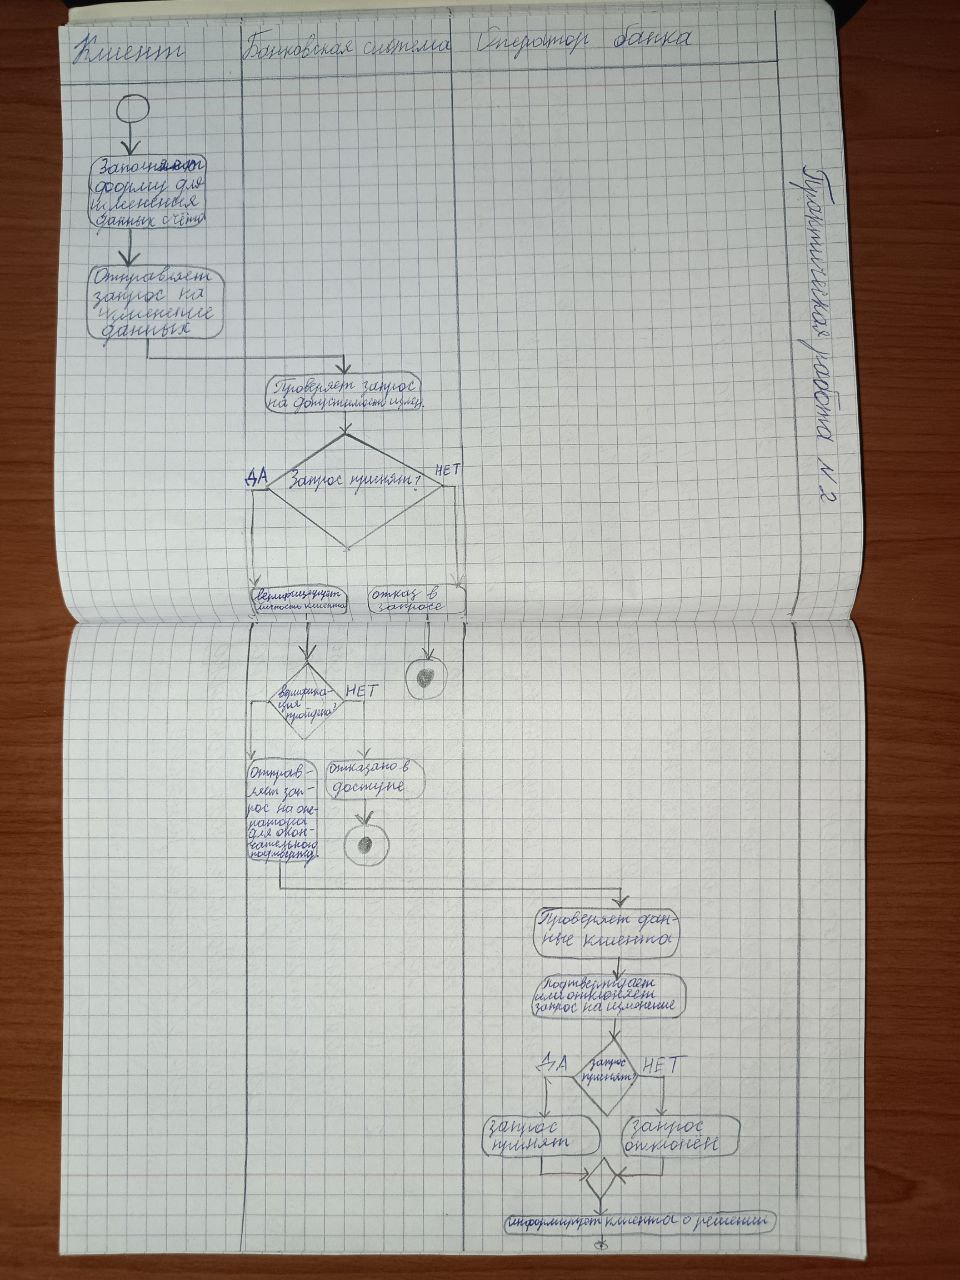 Клиент
Банковская система
Оператор банка
Практическая работа N2
Заполняет
форму для
изменения
данных счёта
Отправляет
запрос на
изменение
данных
Проверяет запрос
на допустимость измен.
Запрос принят?
ДА
НЕТ
верифицирует
личность клиента
отказ в
запросе
верифика-
ция
пройдена?
НЕТ
Отправ-
ляет зап-
рос на опе-
ратора
для окон-
чательного
отказано в
доступе
Проверяет дан-
ные клиента
Подтверждает
или отклоняет
запрос на изменение
запрос
принят?
ДА
НЕТ
запрос
принят
запрос
отклонён
информирует клиента о решении